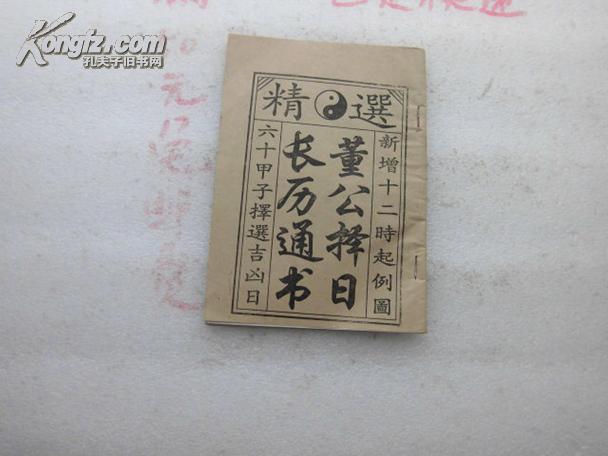 Kongfz.com
孔夫子旧书网
選精
新增十二時起例圖
董公择日
长历通书
六十甲子擇選吉凶日
元包邮